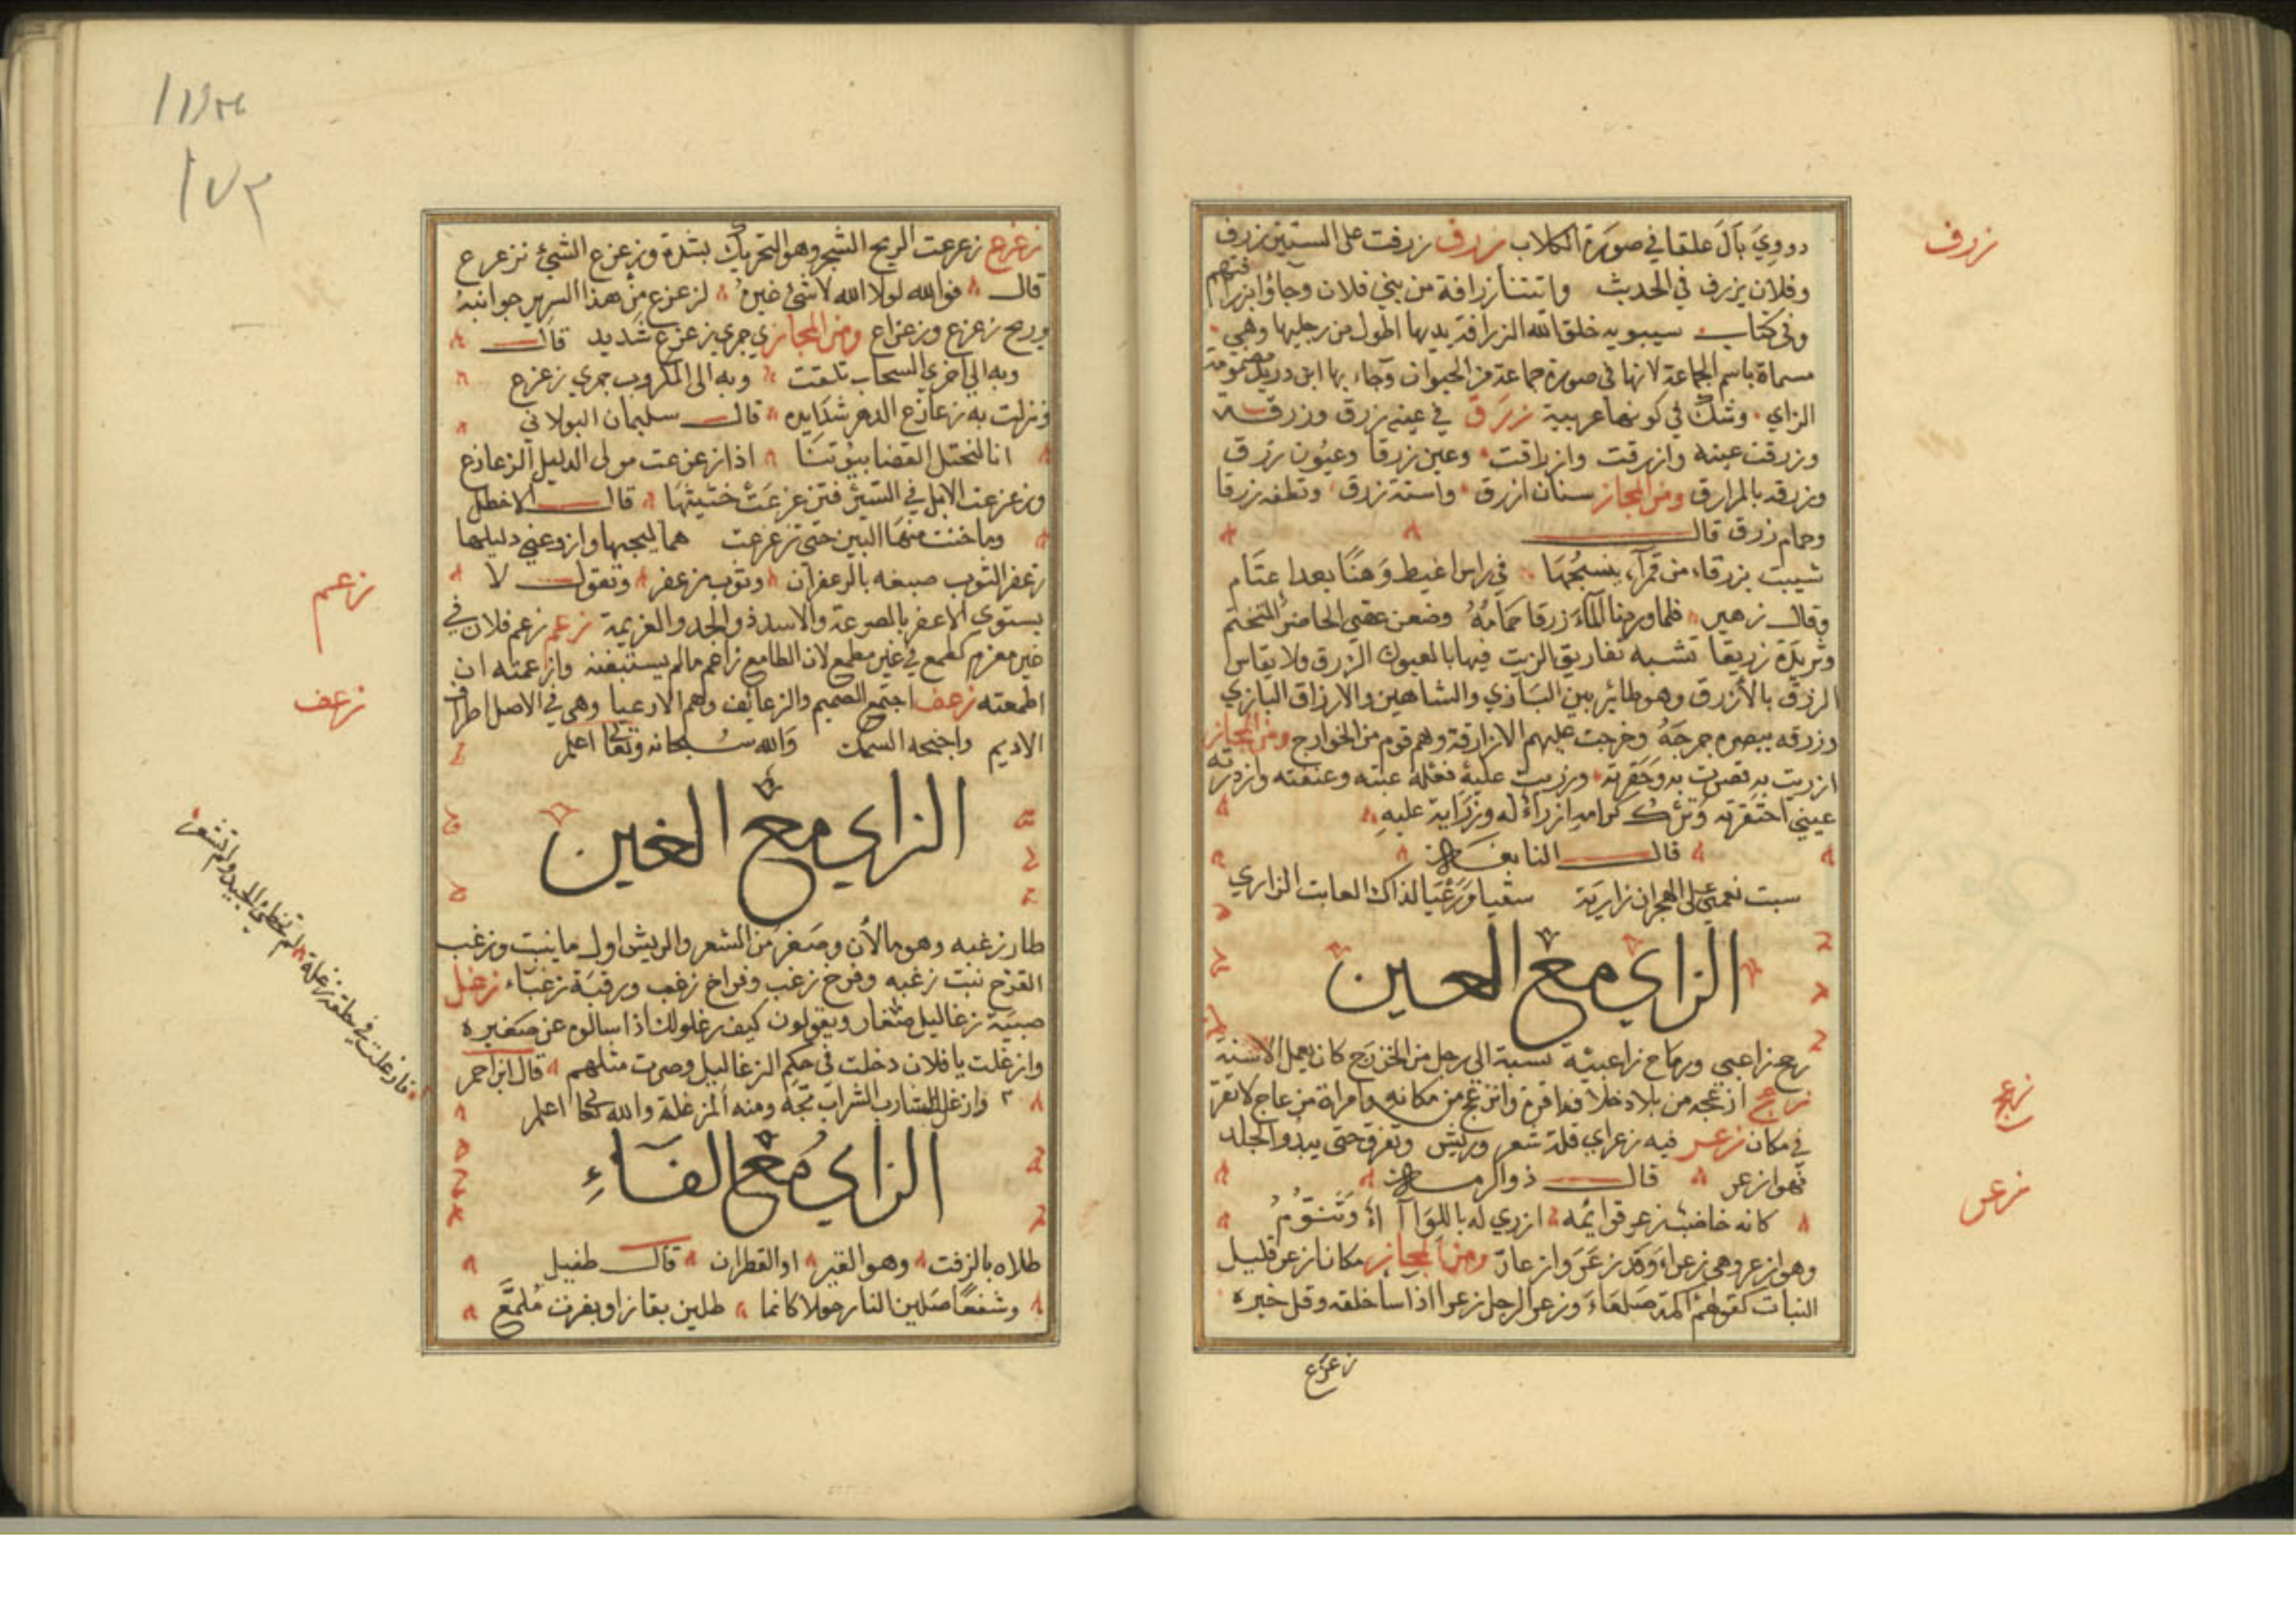 زرف
دووي بال علقا في صورة الكلاب زرف زرفت على الستين زرف
وفلان يزرف في الحديث واتتنا زرافة من بني فلان وجاؤا بزرافتهم
وفي كتاب سيبويه خلق الله الزرافة يديها اطول من رجليها وهي
مسماة باسم الجماعة لانها في صورة جماعة من الحيوان وجاء بها ابن دريد مضمومة
الزاي وشك في كونها عربية زرق في عينه زرق وزرقة
وزرقت عينه وازرقت وازراقت وعين زرقا وعيون زرق
وزرقه بالمزراق ومن المجاز سنان ازرق واسنة زرق ونطفه زرقا
وحمام زرق قال
شيبت بزرقاء من قمراء ينسجها في راس اغيط وهنا بعد اعتام
وقال زهير فلما وردنا الماء زرقا حمامه وضعن عصي الحاضر المتخيم
وثريدة زريقا تشبه تفاريق الزيت فيها بالعيون الزرق ولا يقاس
الزرق بالازرق وهو طائر بين البازي والشاهين والازراق البازي
وزرقه ببصره حرجه وخرجت عليهم الازارقة وهم قوم من الخوارج ومن المجاز
ازريت به قصرت به وحقرته وزريت عليه فعله عبته وعنفته وازدرته
عيني احتقرته وترك كرامه ازراء له وزراية عليه
قال النابغة
سبت نعمي على الهجران زارية سقيا ورعيا لذاك العاتب الزاري
الزاي مع العين
رمح زاعبي ورماح زاعبية نسبة الى رجل من الخزرج كان يعمل الاسنة
زعج ازعجه من بلاده خلاف اقره وانزعج من مكانه وامراة مزعاج لا تقر
زعج
في مكان زعر فيه زعر اي قلة شعر وريش وتفرق حتى يبدو الجلد
فهو ازعر قال ذو الرمة
زعر
كانه خاضب زعر قوائمه ازري له باللوا آء وتنوم
وهو ازعر وهي زعراء وقد زعر وازعار ومن المجاز مكان ازعر قليل
النبات كقولهم اكمة صلعاء وزعر الرجل زعرا اذا ساء خلقه وقل خيره
زعزع
١٧٣
زعزع زعزعت الريح الشجر وهو التحريك بشدة وزعزع الشيء تزعزع
قال فوالله لولا الله لا شيء غيره لزعزع من هذا السرير جوانبه
وريح زعزع وزعزاع ومن المجاز جري زعزع شديد قال
وبه الى اخرى السحاب تلفتت وبه الى المكروب جري زعزع
ونزلت به زعازع الدهر شدايده قال سليمان البولاني
انا لتحتل الفضا بيوتنا اذا زعزعت مولى الذليل الزعازع
وزعزعت الابل في السير فتزعزعت حثيثها قال الاخطل
وما خفت منها البين حتى تزعزعت هماليجها وازور عني دليلها
زعفر الثوب صبغه بالزعفران وثوب مزعفر وتقول لا
يستوي الاعفر بالصرعة والاسد ذو الجد والعزيمة زعم زعم فلان في
زعم
غير مزعم كطمع في غير مطمع لان الطامع زاعم ما لم يستيقنه وازعمته ان
اطمعته زعف اجتمع الصميم والزعانف وهم الادعيا وهي في الاصل اطراف
زعف
الاديم واجنحه السمك والله سبحانه وتعالى اعلم
الزاي مع الغين
طار زغبه وهو ما لان وصغر من الشعر والريش اول ما ينبت وزغب
الفرخ نبت زغبه وفرخ زغب وفراخ زغب ورقبة زغباء زغل
صبية زغاليل صغار ويقولون كيف زغلولك اذا سالوه عن صغيره
وازغلت يا فلان دخلت في حكم الزغاليل وصرت مثلهم قال ابن احمر
فازغلت في حلقه زغلة لم تخطئ الجيد ولم تشفتر
وازغل الشارب الشراب مجه ومنه المزغلة والله تعالى اعلم
الزاي مع الفاء
طلاه بالزفت وهو القير او القطران قال طفيل
وشفعا صلين النار حولا كانما طلين بقار او بزفت ملمع